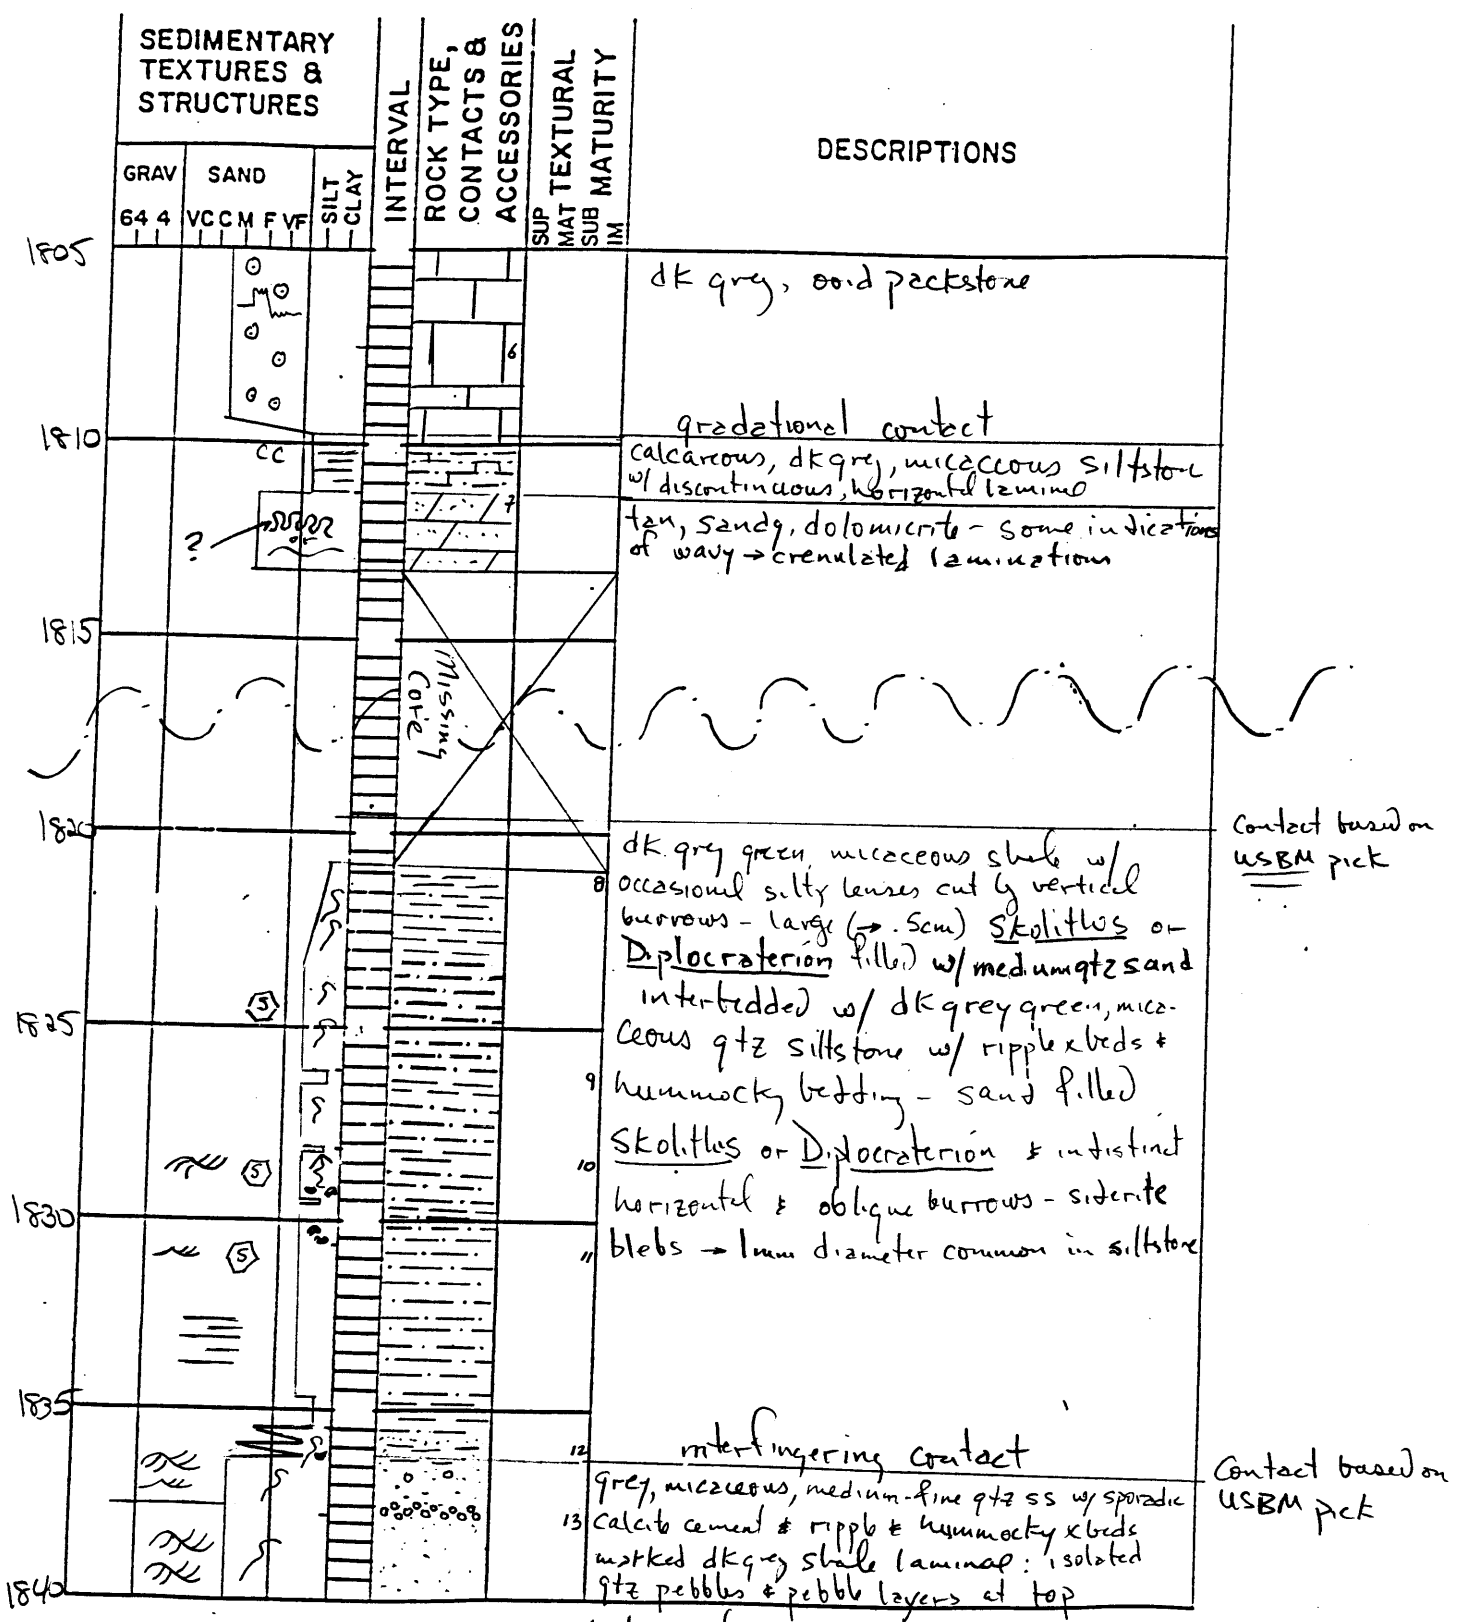 SEDIMENTARY
TEXTURES &
STRUCTURES
GRAV
SAND
SILT
CLAY
64 4
VC C M F VF
INTERVAL
ROCK TYPE,
CONTACTS &
ACCESSORIES
TEXTURAL
MATURITY
SUP
MAT
SUB
IM
DESCRIPTIONS
1805
dk grey, ooid packstone
6
gradational contact
1810
CC
calcareous, dk grey, micaceous siltstone
w/ discontinuous, horizontal laminae
7
tan, sandy, dolomicrite - some indications
of wavy → crenulated laminations
?
1815
Missing
Core
1820
Contact based on
USBM pick
dk. grey green, micaceous shale w/
8
occasional silty lenses cut by vertical
burrows - large (→ .5cm) Skolithus or
Diplocraterion filled w/ medium qtz sand
interbedded w/ dk grey green, mica-
S
1825
ceous qtz siltstone w/ ripple xbeds &
9
hummocky bedding - sand filled
Skolithus or Diplocraterion & indistinct
S
10
horizontal & oblique burrows - siderite
1830
S
11
blebs → 1mm diameter common in siltstone
1835
12
interfingering contact
Contact based on
USBM pick
grey, micaceous, medium-fine qtz ss w/ sporadic
13
calcite cement & ripple & hummocky xbeds
marked dk grey shale laminae: isolated
qtz pebbles & pebble layers at top
1840